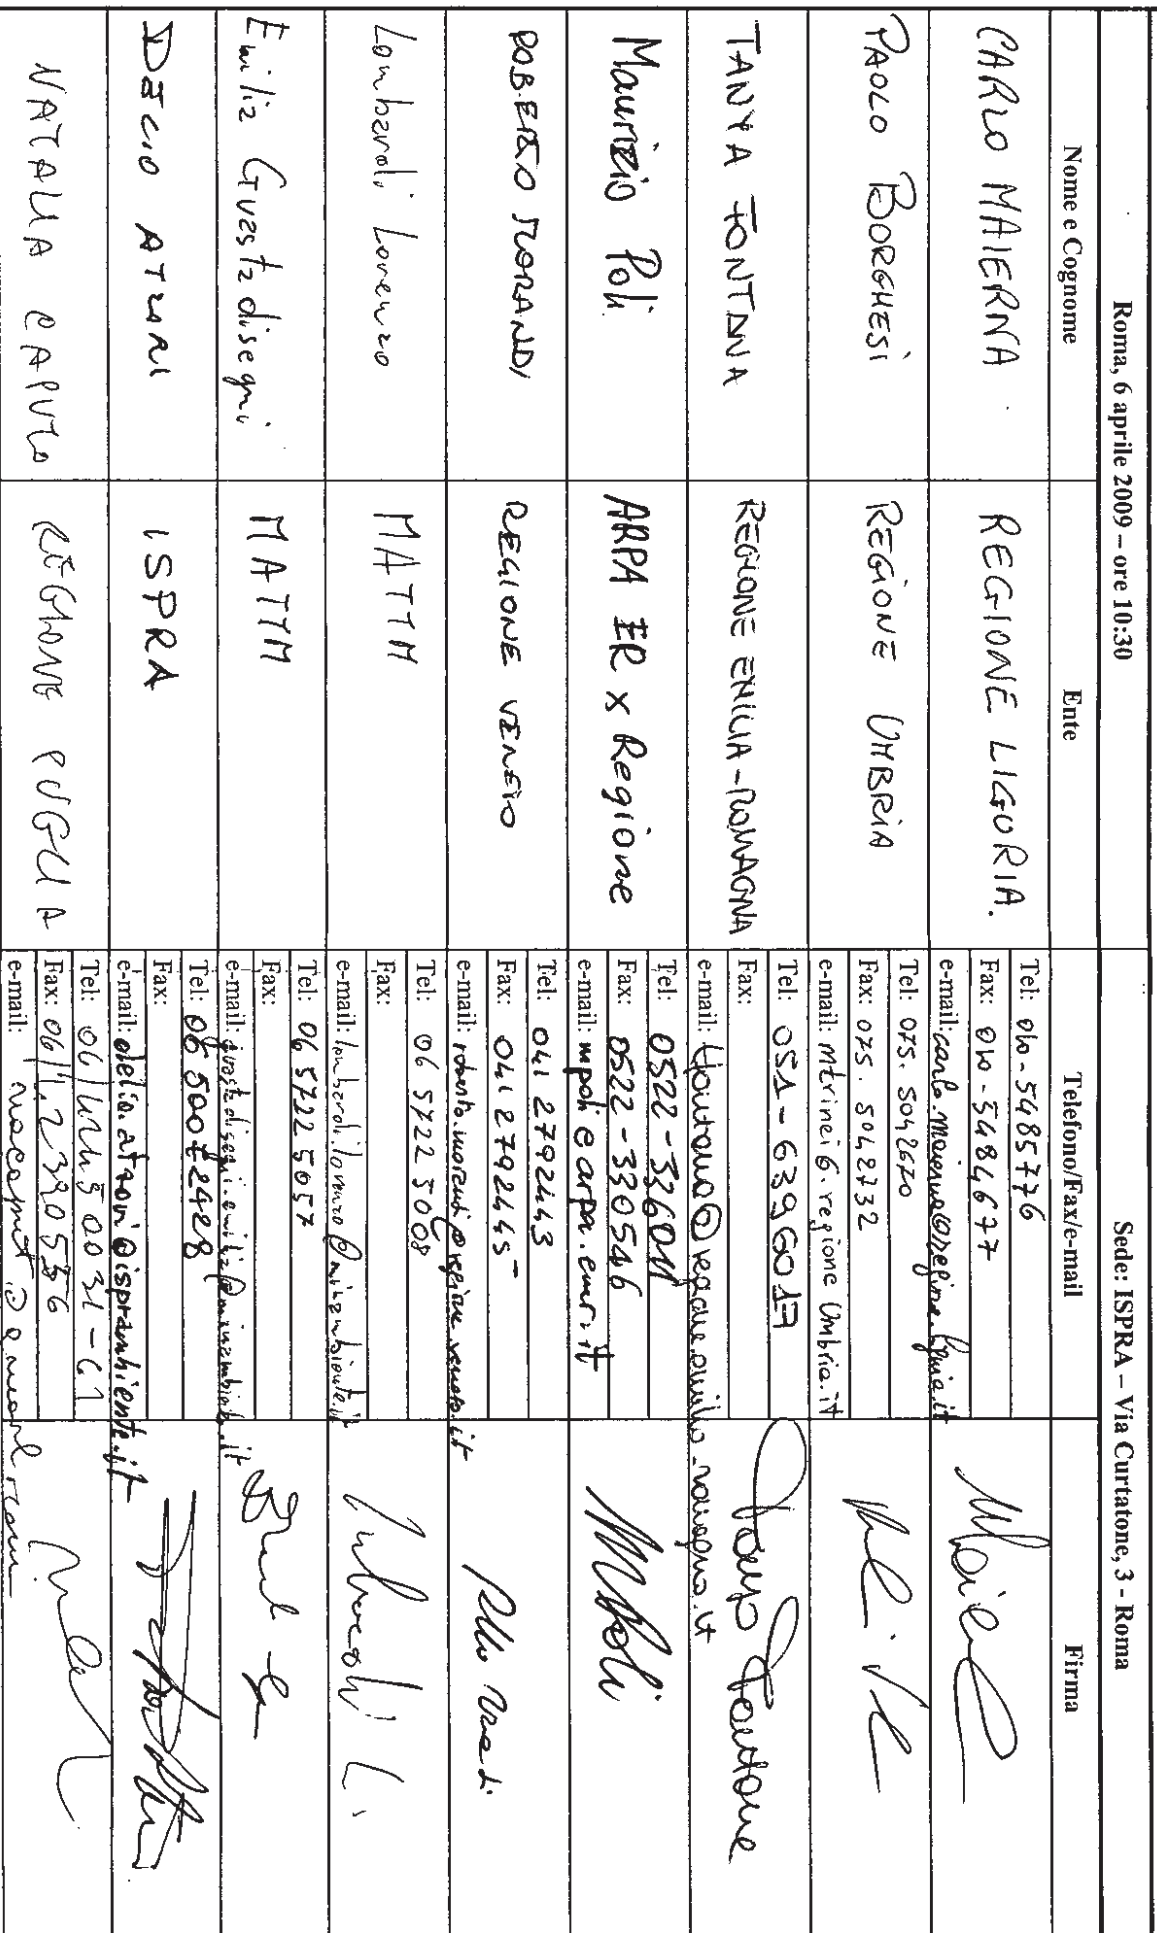 Roma, 6 aprile 2009 – ore 10:30
Sede: ISPRA – Via Curtatone, 3 - Roma
Nome e Cognome
Ente
Telefono/Fax/e-mail
Firma
CARLO MAIERNA
REGIONE LIGURIA.
Tel: 010-5485776
Fax: 010-5484677
e-mail:
PAOLO BORGHESI
REGIONE UMBRIA
Tel: 075.5042670
Fax: 075.5042732
e-mail:
TANYA FONTANA
REGIONE EMILIA-ROMAGNA
Tel: 051-6396017
Fax:
e-mail:
Tanya Fontana
Maurizio Poli
ARPA ER x Regione
Tel: 0522-33601
Fax: 0522-330546
e-mail: mpoli@arpa.emr.it
MPoli
ROBERTO MORANDI
REGIONE VENETO
Tel: 041 2792443
Fax: 041 2792445
e-mail: roberto.morandi@regione.veneto.it
Lombardi Lorenzo
MATTM
Tel: 06 5722 5008
Fax:
e-mail: lombardi.lorenzo@minambiente.it
Emilia Guastadisegni
MATTM
Tel: 06 5722 5057
Fax:
e-mail: guastadisegni.emilia@minambiente.it
ISPRA
Tel: 06 50072428
Fax:
e-mail:
NATALIA CAPUTO
REGIONE PUGLIA
Tel:
Fax:
e-mail: